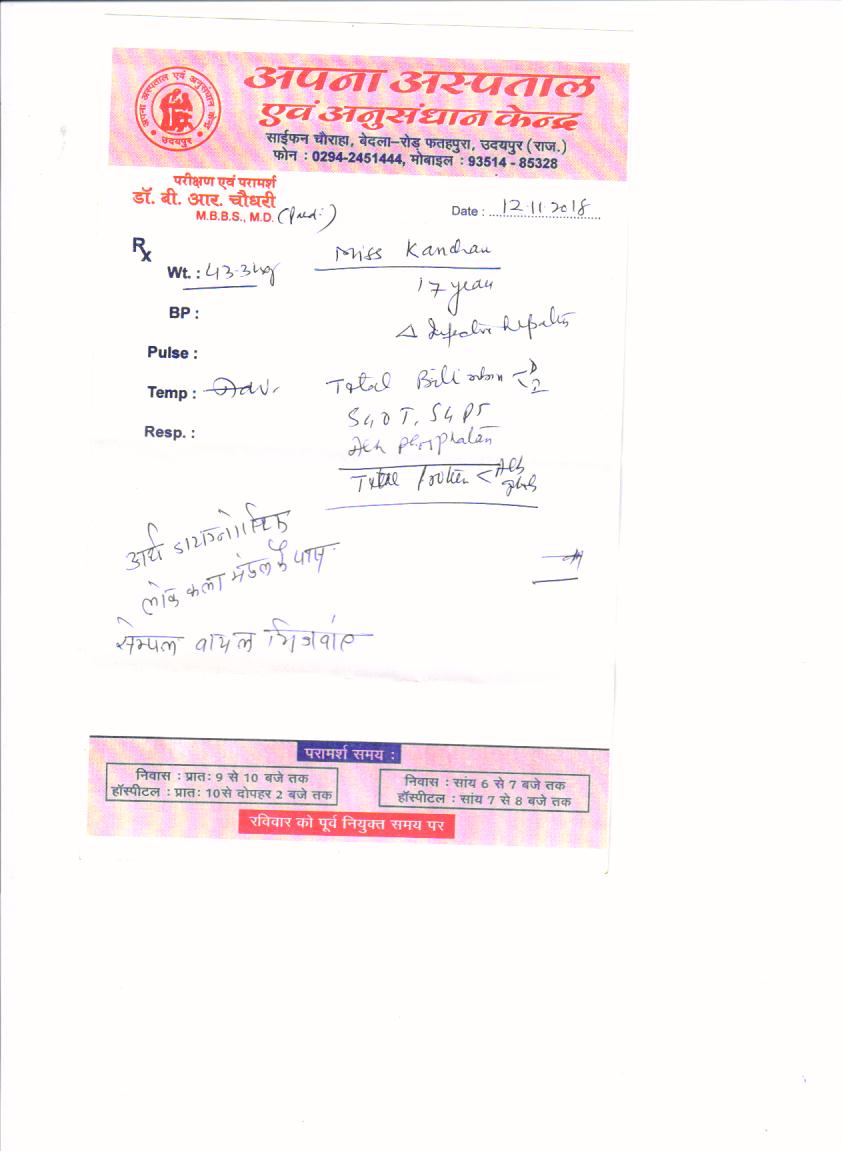 अपना अस्पताल एवं अनुसंधान केन्द्र
उदयपुर
अपना अस्पताल
एवं अनुसंधान केन्द्र
साईफन चौराहा, बेदला–रोड़ फतहपुरा, उदयपुर (राज.)
फोन : 0294-2451444, मोबाइल : 93514 - 85328
परीक्षण एवं परामर्श
डॉ. बी. आर. चौधरी
M.B.B.S., M.D.
Date : 12.11.2018
Rx
Miss
Wt. : 43.3kg
17 year
BP :
Δ
Pulse :
Temp :
Total Bili D
I
SGOT, SGPT
Resp. :
Total
लोक कला मंडल के पास
सेम्पल वायल
परामर्श समय :
निवास : प्रातः 9 से 10 बजे तक
हॉस्पीटल : प्रातः 10से दोपहर 2 बजे तक
निवास : सांय 6 से 7 बजे तक
हॉस्पीटल : सांय 7 से 8 बजे तक
रविवार को पूर्व नियुक्त समय पर